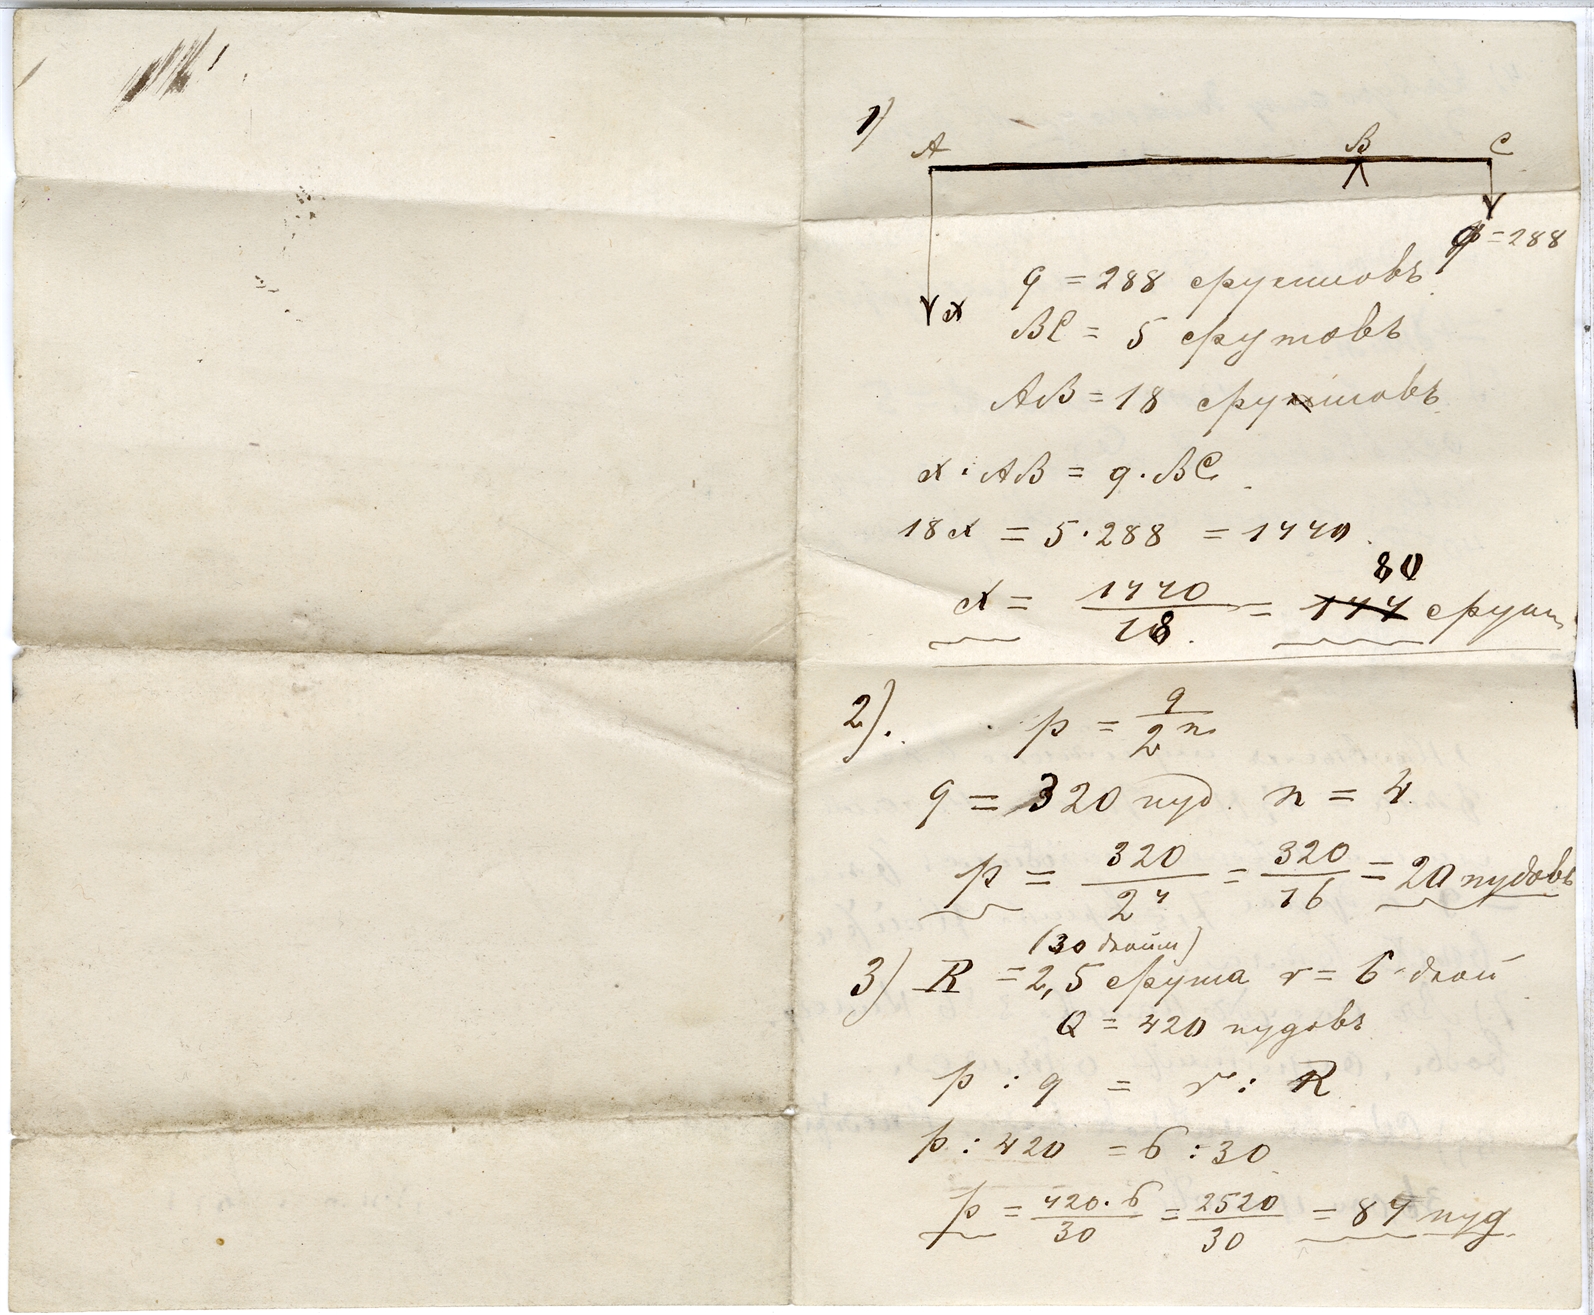 1)
A B C
q = 288
x
q = 288 фунтовъ
BC = 5 футовъ
AB = 18 футовъ
x · AB = q · BC
18x = 5 · 288 = 1440
80
x = 1440/18 = 144 фунт
2). p = q/2ⁿ
q = 320 пуд. n = 4.
p = 320/2⁴ = 320/16 = 20 пудовъ
(30 дюйм)
3) R = 2,5 фута r = 6 дюй
Q = 420 пудовъ
p : q = r : R
p : 420 = 6 : 30
p = 420·6/30 = 2520/30 = 84 пуд